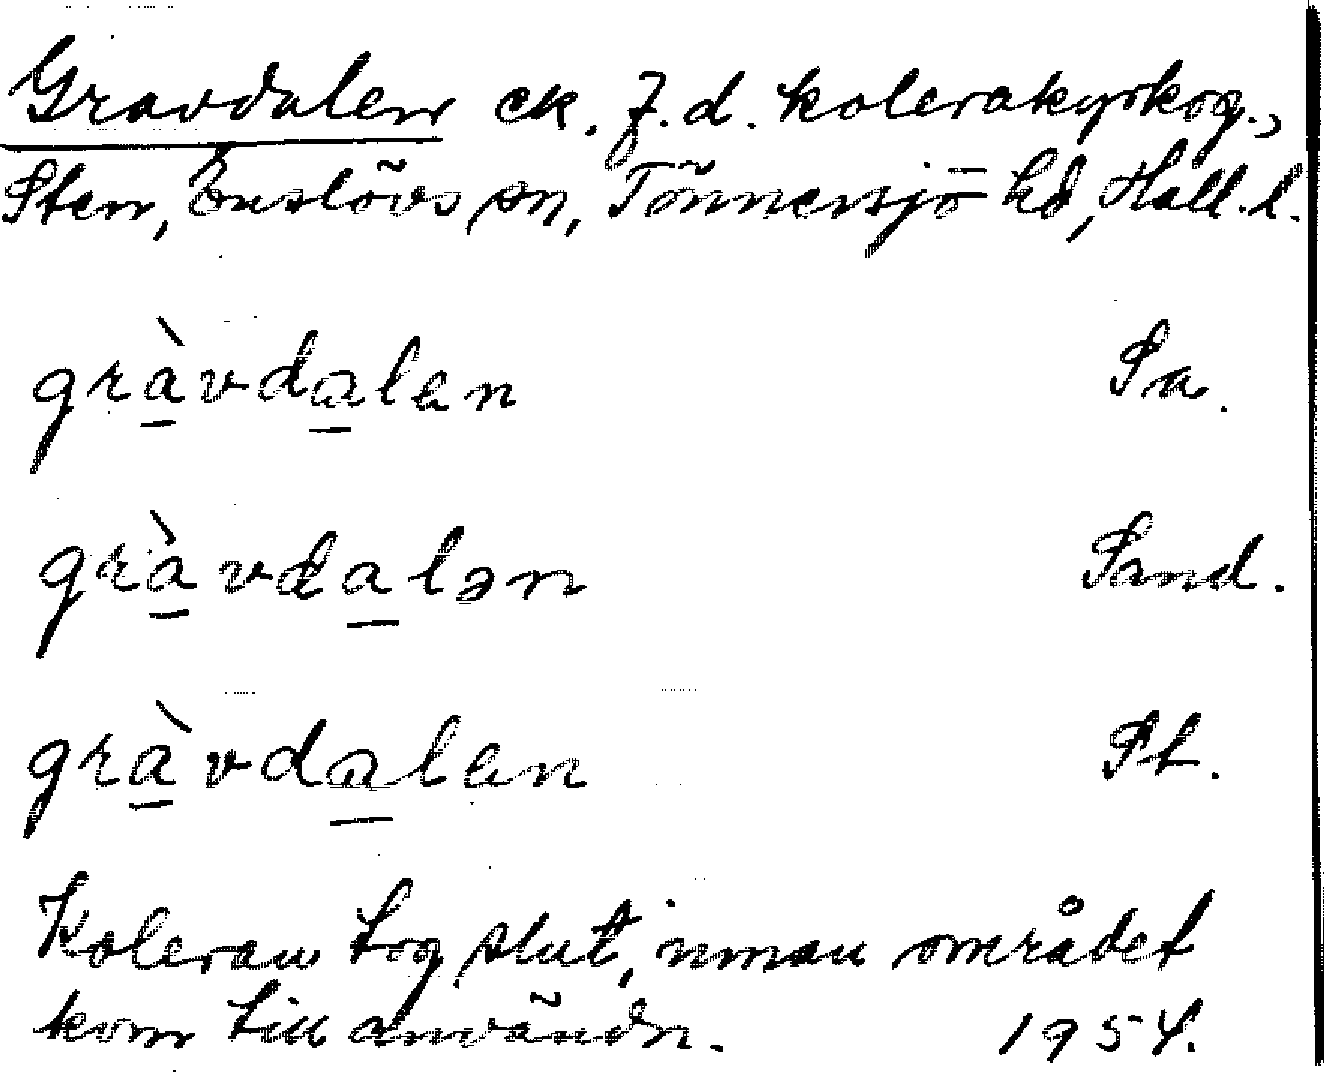 Gravdalen ck. f.d. kolerakyrkog.,
Sten, Enslövs sn, Tönnersjö hd, Hall. l.
gràvdalen Sa.
gràvdalən Sand.
gràvdalen St.
Koleran tog slut, innan området
kom till användn. 1954.